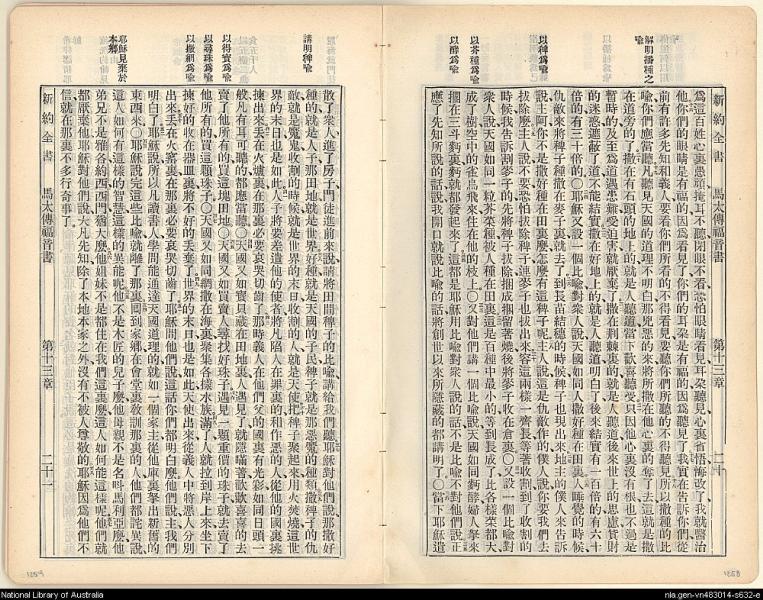 解明撒種之喻
以稗爲喻
以芥種爲喻
以酵爲喻
新約全書 馬太傳福音書 第十三章 二十
爲這百姓心裏愚頑掩耳不聽閉眼不看恐怕眼睛看見耳朵聽見心裏省悟悔改了我就醫治
他們你們的眼睛是有福的因爲看見了你們的耳朵是有福的因爲聽見了我實在告訴你們從
前有許多先知和義人要看你們所看的不得看見要聽你們所聽的不得聽見所以撒種的比
喻你們應當聽凡聽見天國的道理不明白那兇惡的來將所撒在他心裏的奪了去這就是撒
在道旁的了撒在有石頭的地上的就是人聽道當下歡喜聽受只因他心裏沒有根也不過是
暫時的及至爲道遇患難受迫害就厭棄了撒在荊棘裏的就是人聽道後來世上的思慮貨財
的迷惑遮蔽了道不能結實撒在好地上的就是人聽道明白了後來結實有一百倍的有六十
倍的有三十倍的〇耶穌又設一個比喻對衆人說天國如同人撒好種在田裏人睡覺的時候
仇敵來將稗子種撒在麥子裏就去了到長苗結穗的時候稗子也現出來地主的僕人來告訴
說主阿你不是撒好種在田裏麼怎麼有這稗子呢主人說這是仇敵作的僕人說你要我們去
拔除麼主人說不要恐怕拔除稗子連麥子也拔出來容這兩樣一齊長等著收割到了收割的
時候我告訴收割的先將稗子拔除捆成捆留著燒後將麥子收在倉裏〇又設一個比喻對
衆人說天國如同一粒芥菜種被人種在田裏這是百種中最小的等到長成了比各樣菜都大
成了樹空中的雀鳥飛來住在他的枝上〇又對他們講一個比喻說天國如同麪酵婦人拏來
擱在三斗麪裏麪就都發起來了這都是耶穌用比喻對衆人說的話不是比喻不對他們說正
應了先知所說的話說我開口就說比喻的話將創世以來所隱藏的都講明了〇當下耶穌遣
1258
講明稗喻
以得寶爲喻
以尋珠爲喻
以撒網爲喻
耶穌見棄於本鄉
散了衆人進了房子門徒進前來說請將田間稗子的比喻講給我們聽耶穌對他們說那撒好
種的就是人子那田地就是世界好種就是天國的子民稗子就是那惡的種類撒稗子的仇
敵就是魔鬼收割的時候就是世界的末日收割的人就是天使把稗子聚起來用火焚燒這世
界的末日也是如此人子將要差遣他的使者將凡陷人在罪裏的和作惡的人從他的國裏挑
揀出來丟在火爐裏在那裏必要哀哭切齒了那時義人在他們父的國裏有光彩如同日頭一
般凡有耳可聽的都應當聽〇天國又如寶貝藏在田地裏人遇見了就隱瞞著歡歡喜喜的去
賣了他所有的買這塊田地〇天國又如買賣人尋找好珠子遇見一顆重價的珠子就去賣了
他所有的買這顆珠子〇天國又如同網撒在海裏聚集各樣水族滿了人就拉到岸上來坐下
揀好的收在器皿裏將不好的丟棄了世界的末日也是如此天使出來從義人中將惡人分別
出來丟在火窰裏在那裏必要哀哭切齒了耶穌問他們說這話你們都明白麼他們說主我們
明白了耶穌說所以凡讀書人學問能通達天國道理的就如一個家主從他庫裏拏出新舊的
東西來〇耶穌說完這些比喻就離了那裏回到家鄉在會堂裏教訓那裏的人他們都詫異說
這人如何有這樣的智慧這樣的異能呢他不是木匠的兒子麼他母親不是名叫馬利亞麼他
弟兄不是雅各約西西門猶大麼他姐妹不是都住在我們這裏麼這人如何能這樣呢他們就
都厭棄他耶穌對他們說大凡先知除了本地本家之外沒有不被人尊敬的耶穌因爲他們不
信就在那裏不多行奇事了
新約全書 馬太傳福音書 第十三章 二十一
1259
National Library of Australia
nla.gen-vn483014-s632-e